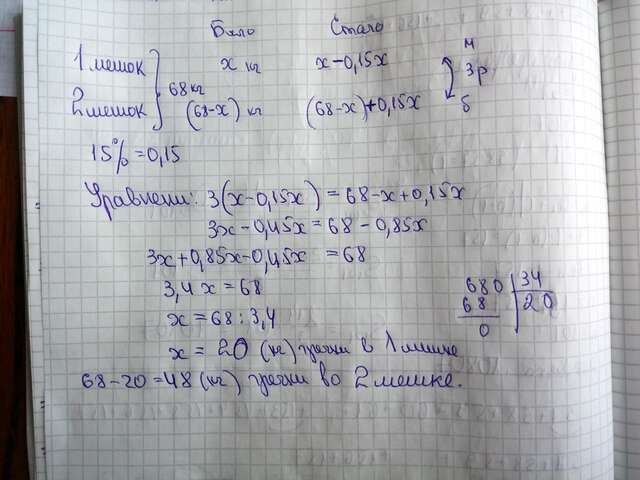 Было Стало
1 мешок } 68 кг x кг x-0,15x м
2 мешок (68-x) кг (68-x)+0,15x 3р б
15% = 0,15
Уравнение: 3(x-0,15x) = 68-x+0,15x
3x-0,45x = 68-0,85x
3x+0,85x-0,45x = 68
3,4x = 68
x = 68 : 3,4
x = 20 (кг) пряжи в 1 мешке
68-20 = 48 (кг) пряжи во 2 мешке.
680 34
68 20
0